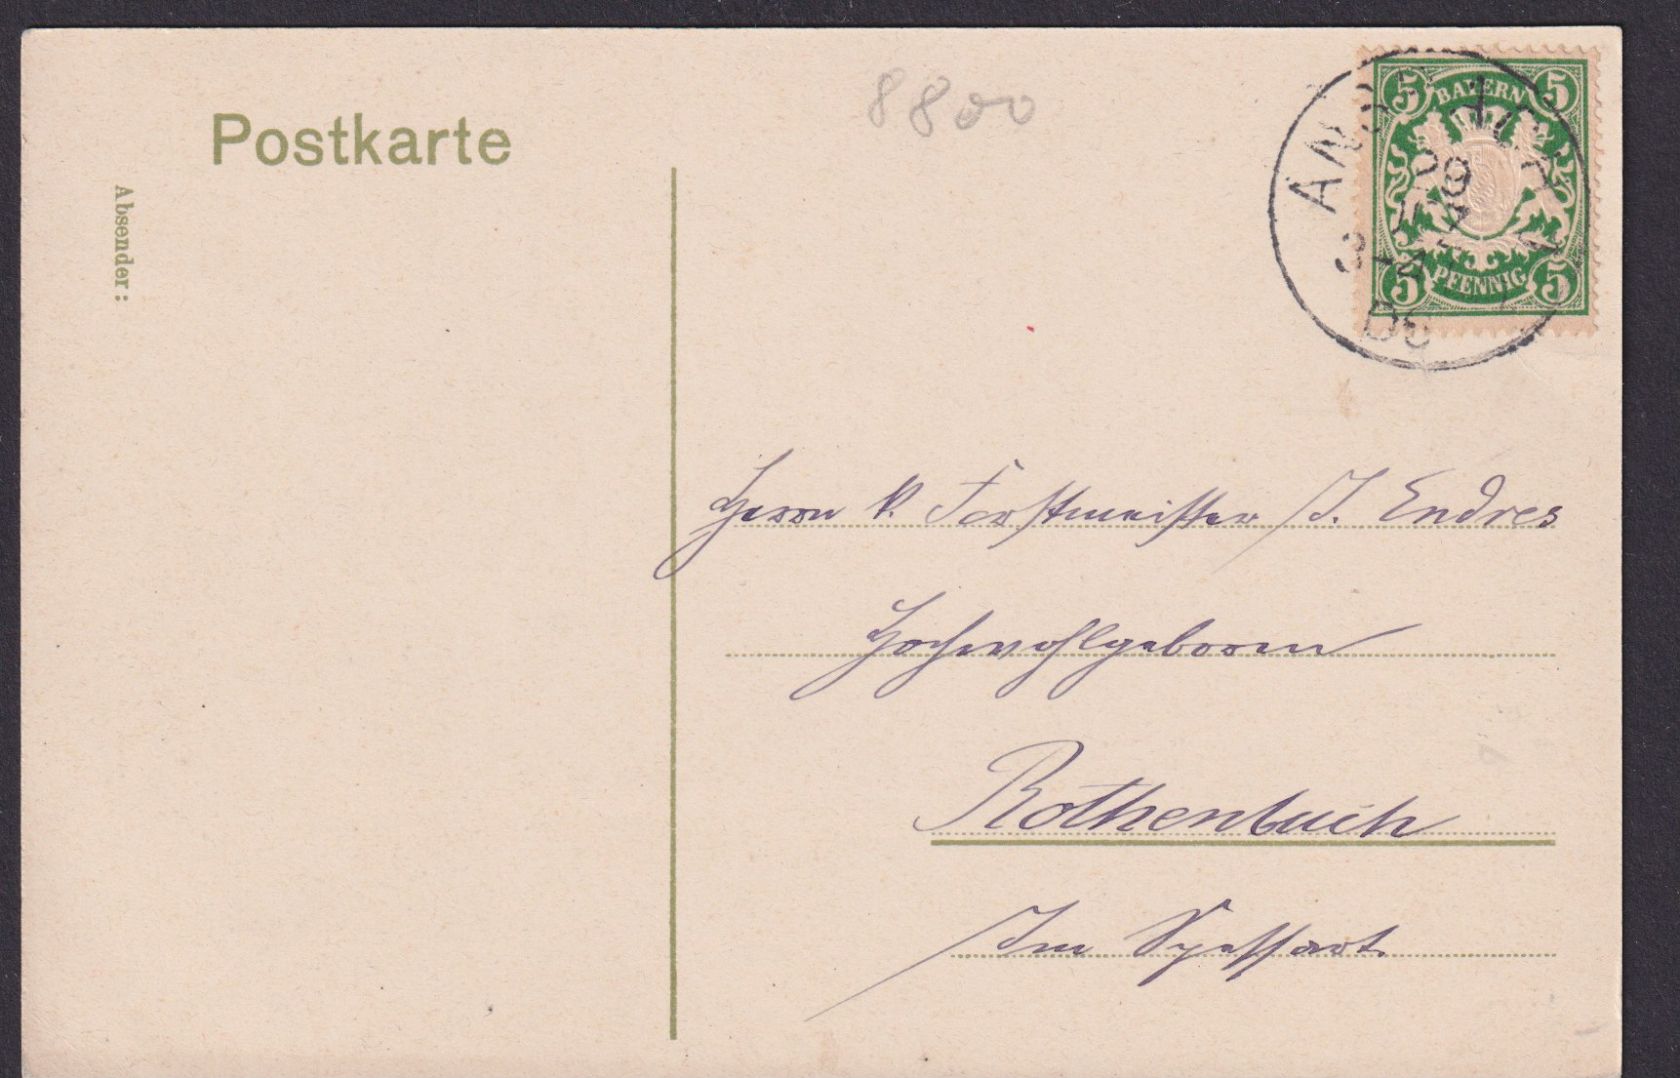 8800
Postkarte
Absender:
5 BAYERN 5
5 PFENNIG 5
29
3-4
Herrn k. Forstmeister J. Endres
Hochwohlgeboren
Rothenbuch
Im Spessart.